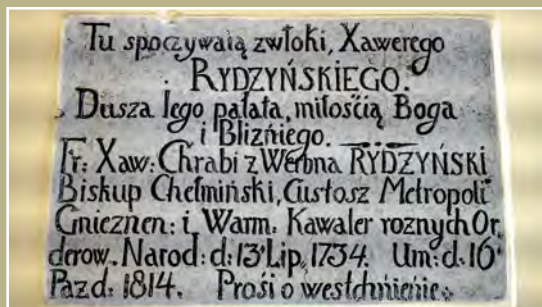 Tu spoczywaią zwłoki, Xawerego
RYDZYŃSKIEGO.
Dusza Iego pałata, miłością Boga
i Bliźniego.
Fr: Xaw: Chrabi z Werbna RYDZYŃSKI
Biskup Chełmiński, Custosz Metropoli
Gnieznen: i Warm: Kawaler roznych Or,
derow. Narod: d: 13 Lip, 1734. Um: d: 16
Pazd: 1814. Prosi o westchnienie